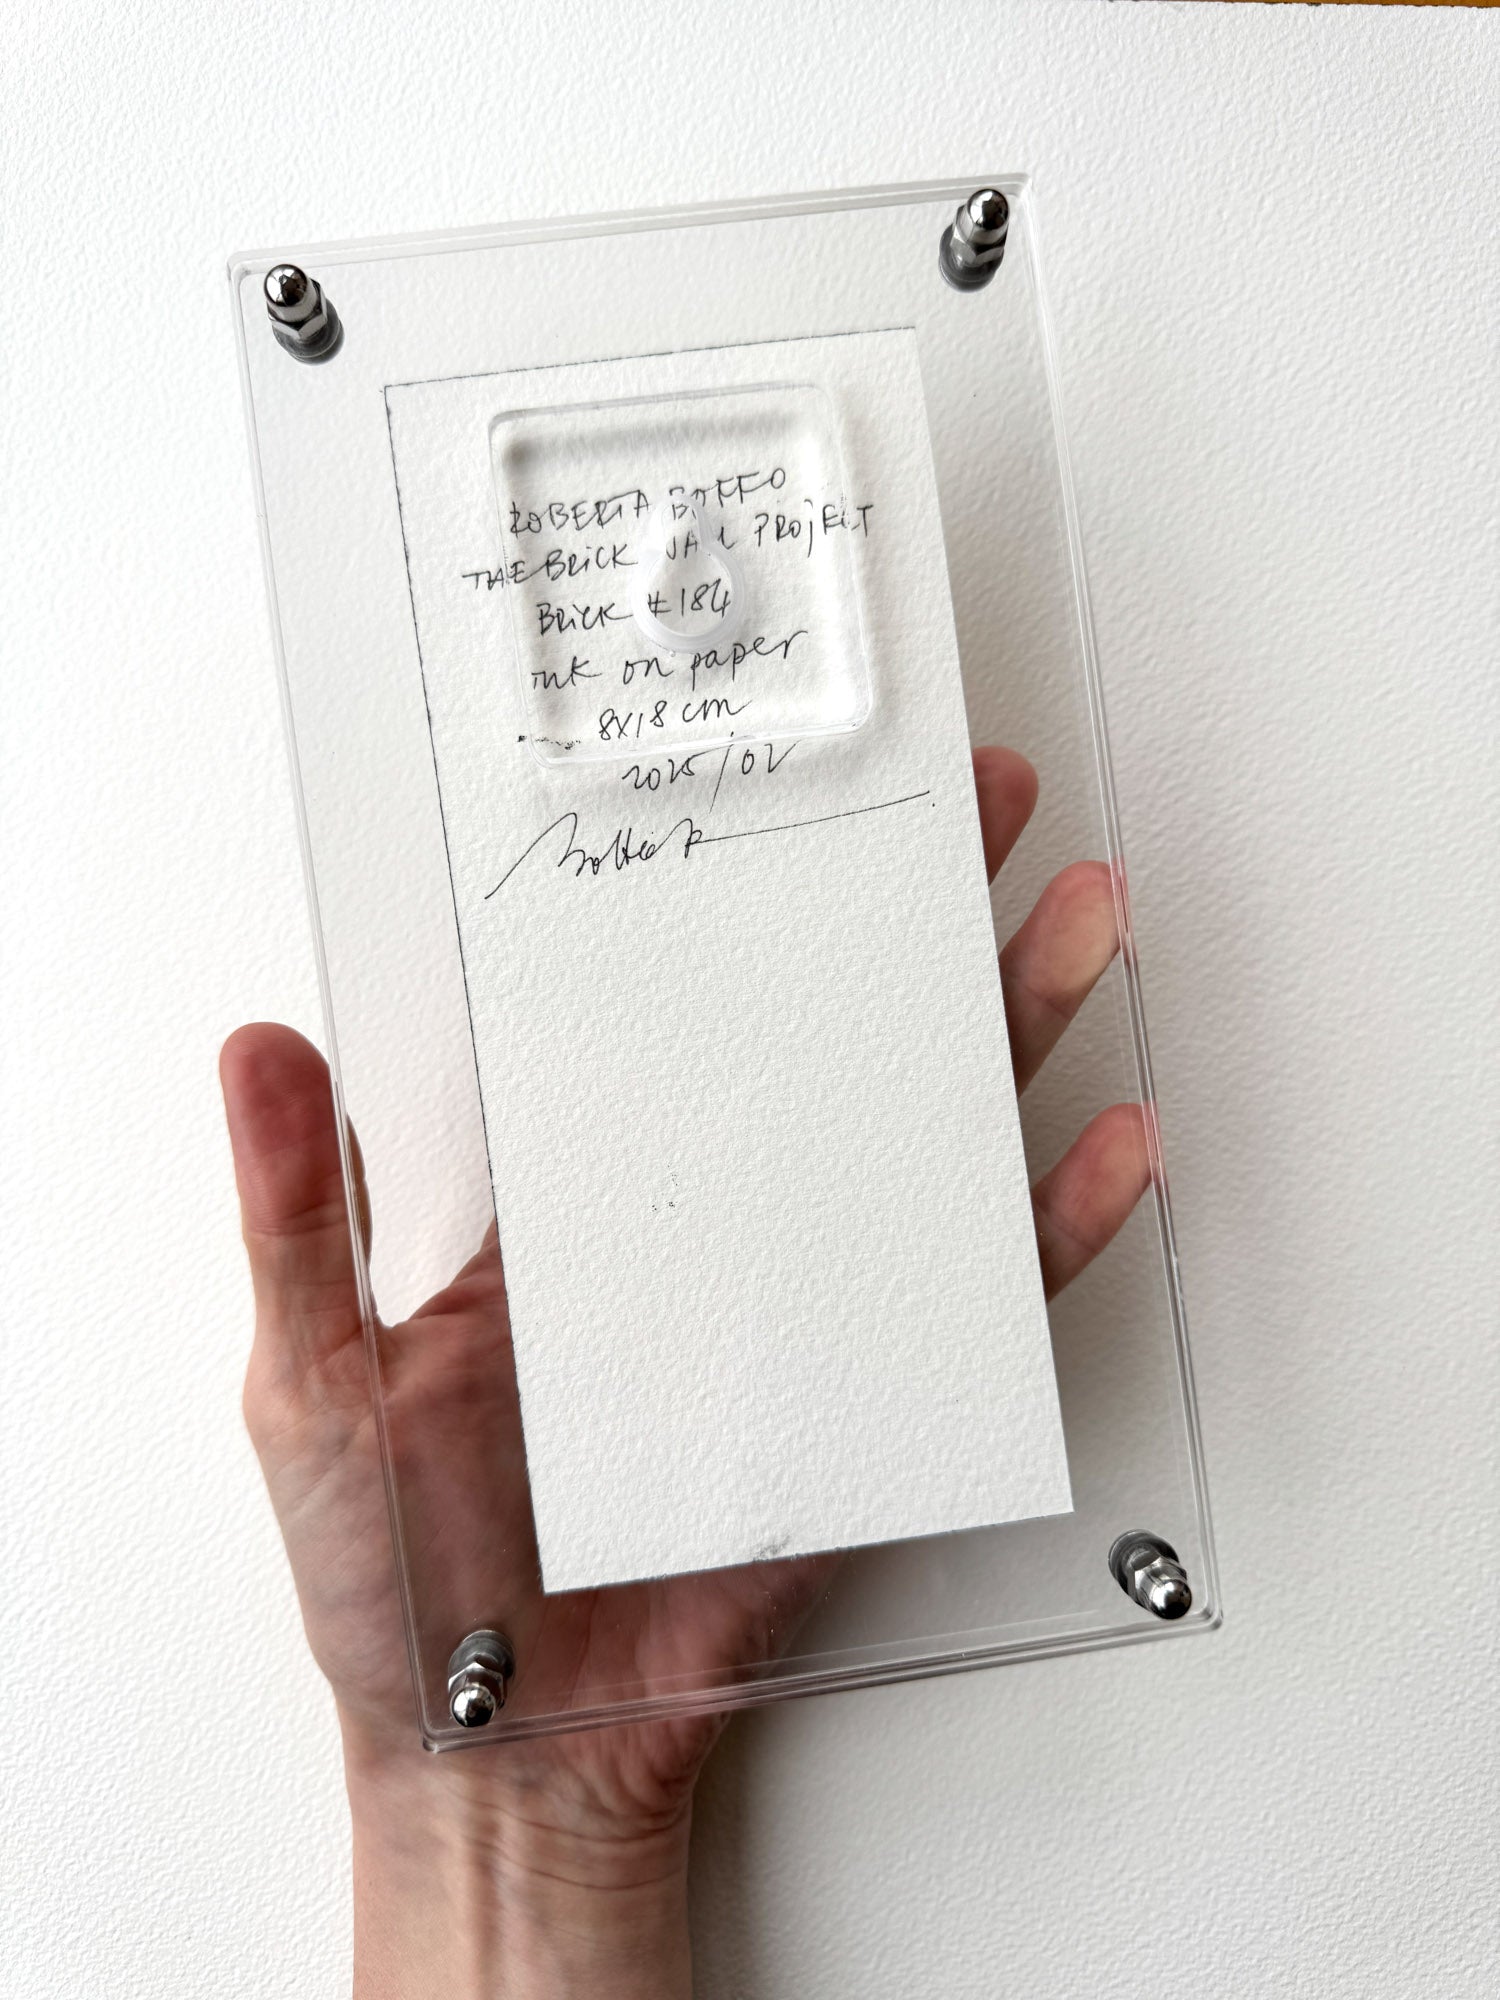 ROBERTA BOFFO
THE BRICK WALL PROJECT
BRICK #184
ink on paper
8x18 cm
2025/02